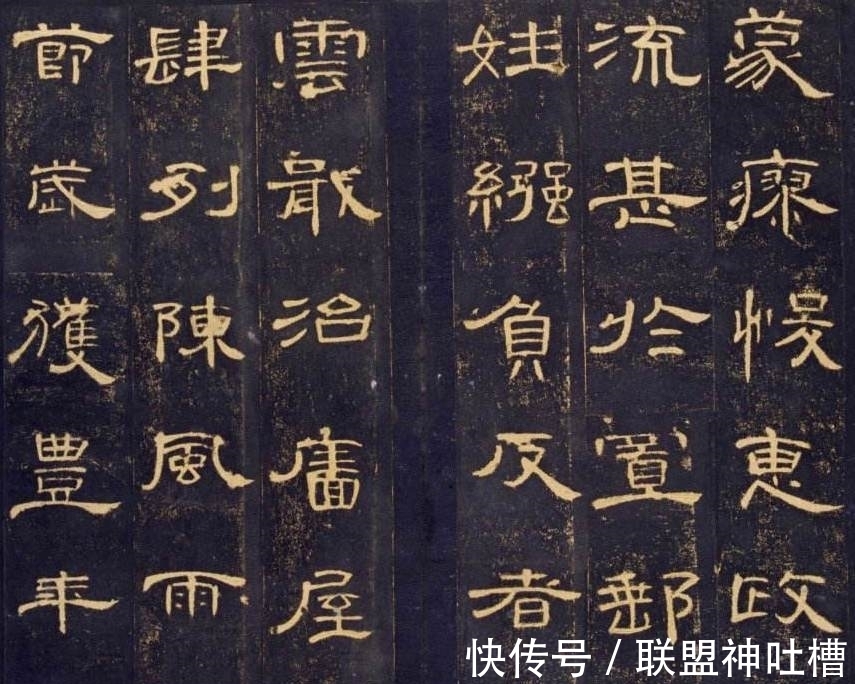 蒙瘳悛惠政
流甚於置郵
姓繦負反者
雲戢治廧屋
肆列陳風雨
節歲獲豐年
快传号 / 联盟神吐槽